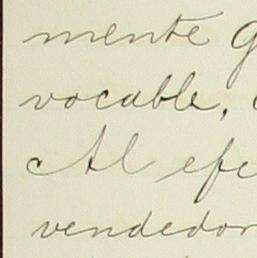 mente
vocable,
Al efe
vendedor